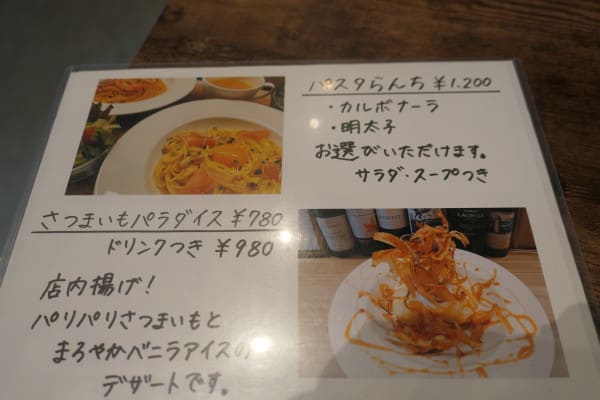 パスタらんち ¥1.200
・カルボナーラ
・明太子
お選びいただけます。
サラダ・スープつき
さつまいもパラダイス ¥780
ドリンクつき ¥980
店内揚げ!
パリパリさつまいもと
まろやかバニラアイスの
デザートです。